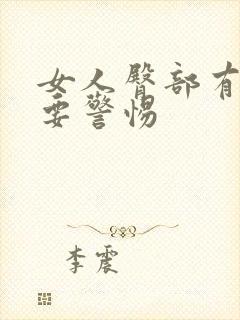 女人臀部有
要警惕
李震